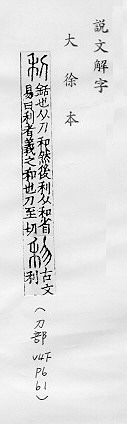 說文解字
大徐本
銛也从刀和然後利从和省
易曰利者義之和也力至切
古文
利
(刀部
V4下
P6
b1)